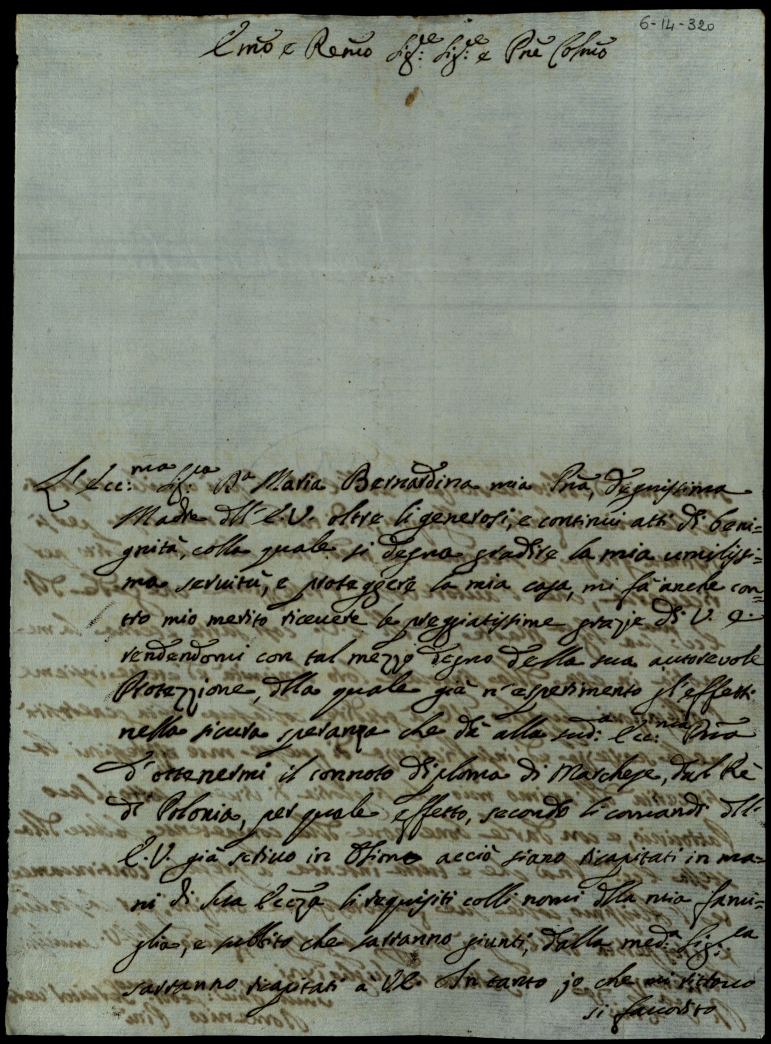 6-14-320
Emo e Remo Sig.re Sig.re e Pne Colmo
L'Ecc.ma Sig.ra Da Maria Bernardina mia Pna, degnissima
Madre dll' E.V. oltre li generosi, e continui atti di beni=
gnità, colla quale si degna gradire la mia umilissi=
ma servitù, e proteggere la mia casa, mi fà anche con=
tro mio merito ricevere le preggiatissime grazje di V. E.
rendendomi con tal mezzo degno della sua autorevole
Protezzione, dlla quale già n'esperimento gl'effetti
nella sicura speranza che dà alla sud.a Ecc.ma Pna
d'ottenermi il connoto diploma di Marchese, dal Rè
di Polonia, per quale effetto, secondo li comandi dll'
E.V. già scrivo in Osimo acciò siano ricapitati in ma=
ni di Sua Eccza li requisiti colli nomi dlla mia fami=
glia, e subbito che sarranno giunti, dalla med.a Sig.ra
sarranno ricapitati à VE. In tanto jo che mi ritrovo
si favorito